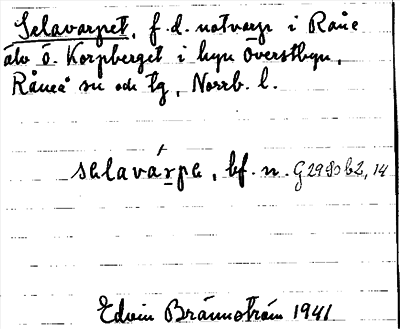 Selavarpet, f.d. notvarp i Råne
älv ö. Korpberget i byn Överstbyn,
Råneå sn och tg, Norrb. l.
selavárpe, bf. n. G 2980 b2, 14
Edvin Brännström 1941